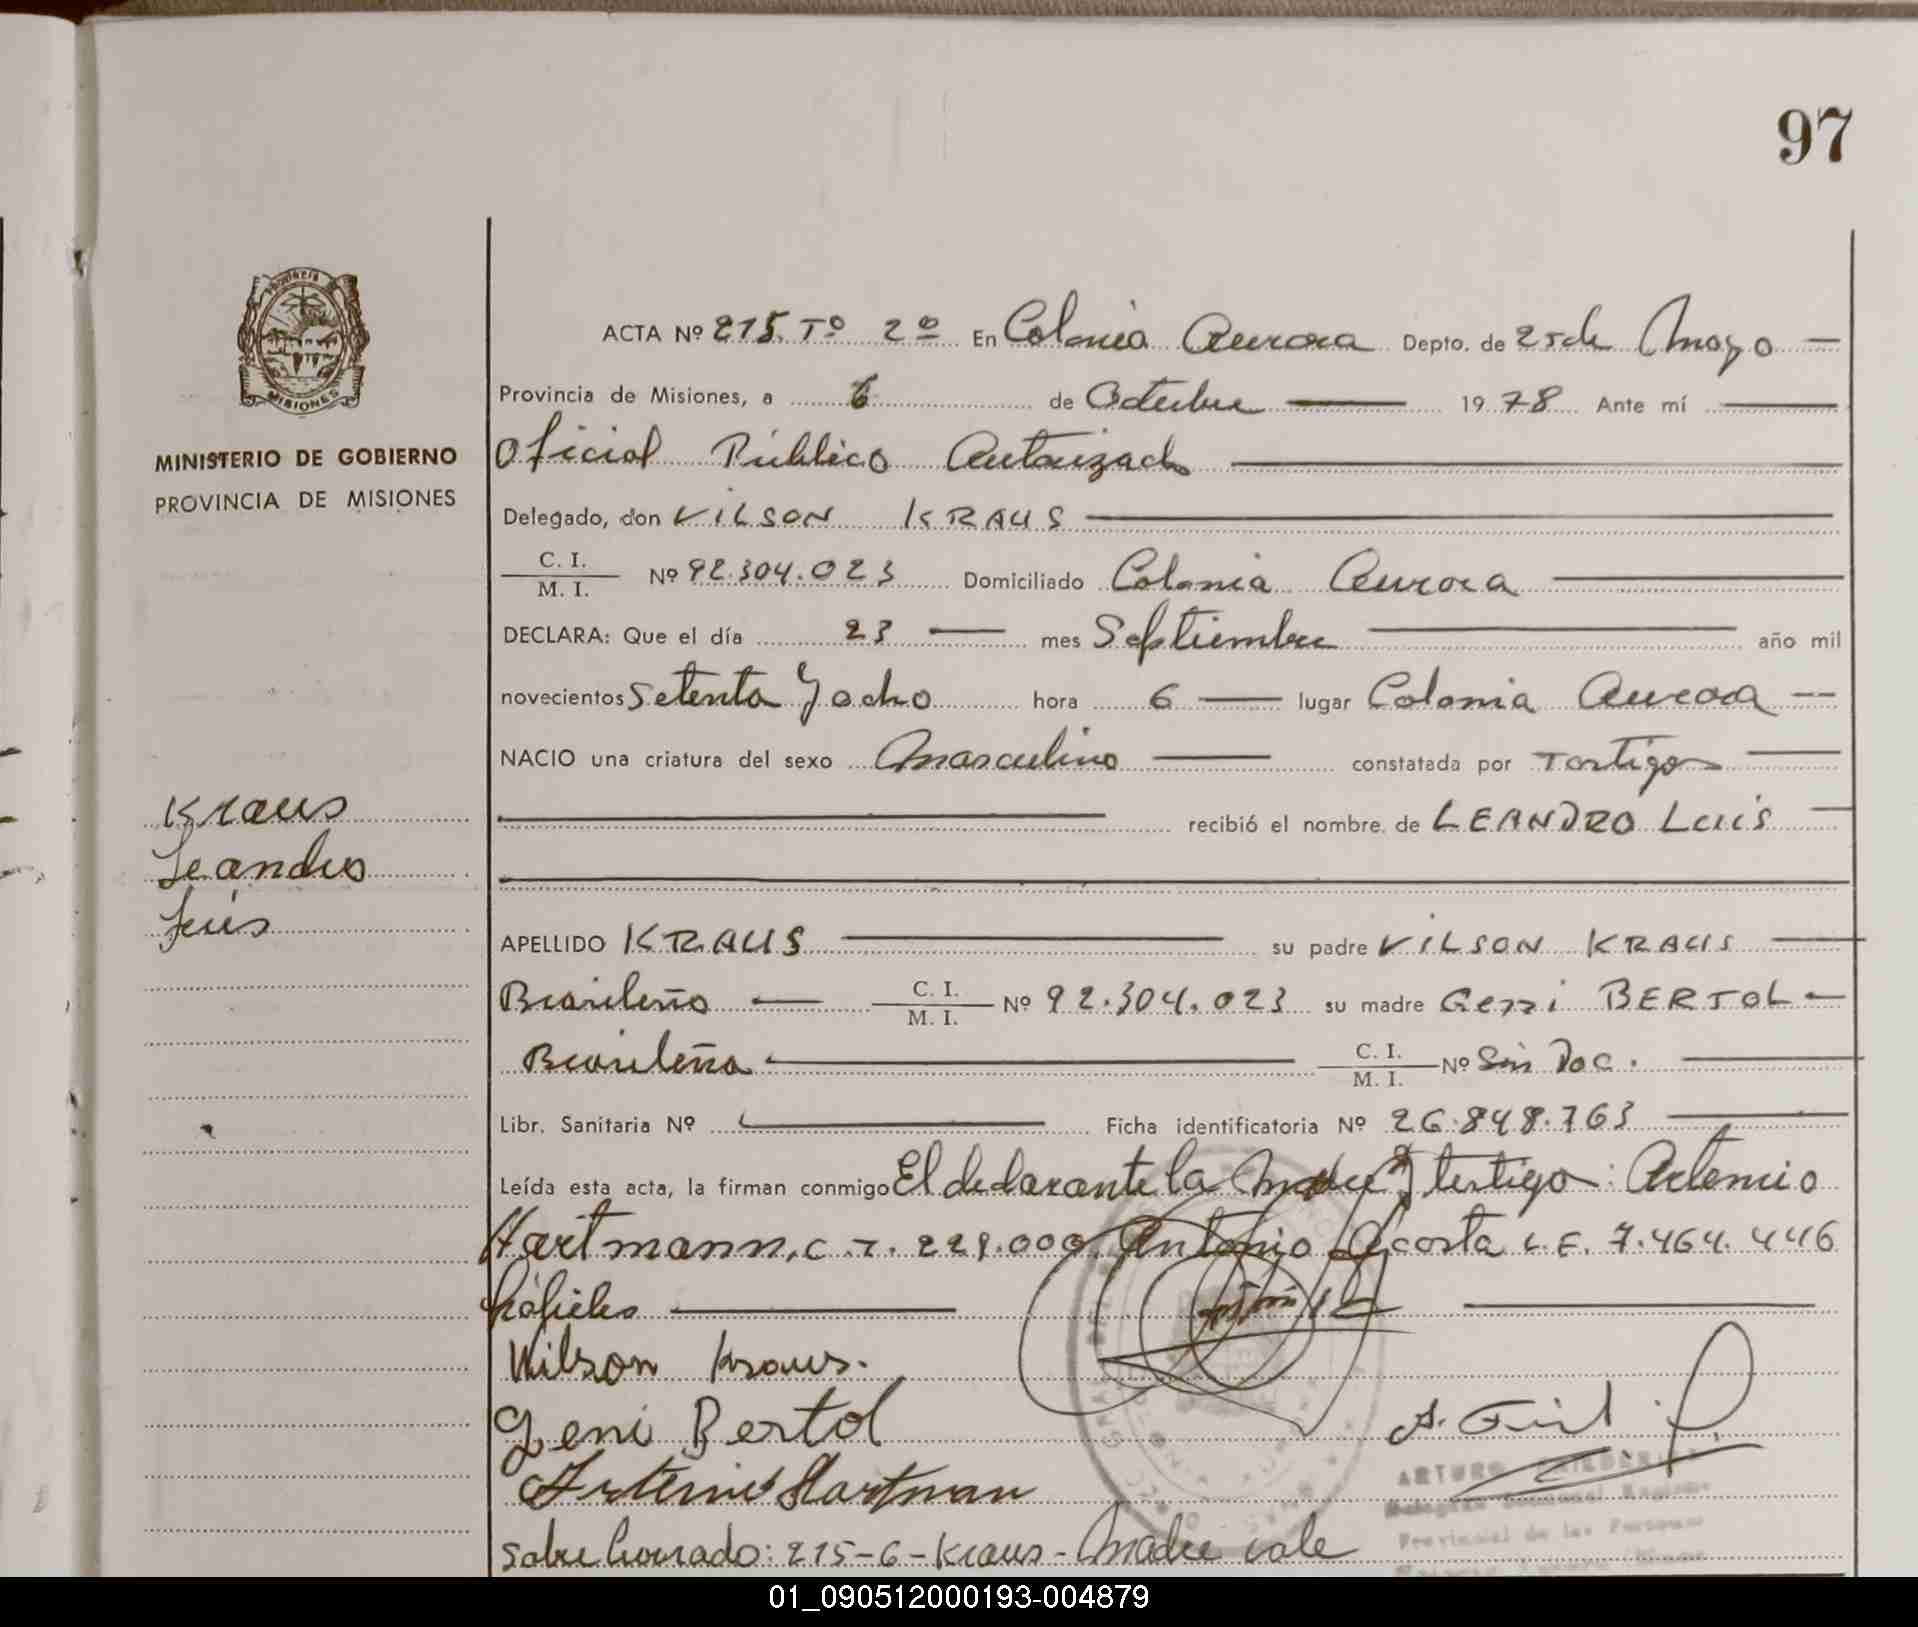 97
PROVINCIA
MISIONES
MINISTERIO DE GOBIERNO
PROVINCIA DE MISIONES
Kraus
Leandro
Luis
ACTA Nº 215. Tº 2º En Colonia Aurora Depto. de 25 de Mayo
Provincia de Misiones, a 6 de Octubre 1978 Ante mí
Oficial Público Autorizado
Delegado, don VILSON KRAUS
C. I.
M. I. Nº 92.304.023 Domiciliado Colonia Aurora
DECLARA: Que el día 23 mes Septiembre año mil
novecientos Setenta y ocho hora 6 lugar Colonia Aurora
NACIO una criatura del sexo Masculino constatada por Testigos
recibió el nombre de LEANDRO Luis
APELLIDO KRAUS su padre VILSON KRAUS
Brasileño C. I.
M. I. Nº 92.304.023 su madre Gezzi BERTOL
Brasileña C. I.
M. I. Nº Sin Doc.
Libr. Sanitaria Nº Ficha identificatoria Nº 26.848.763
Leída esta acta, la firman conmigo El declarante la Madre y testigo: Artemio
Hartmann, C. I. 229.000, Antonio Acosta L.E. 7.464.446
hábiles
Wilson Kraus.
Geni Bertol
Artemio Hartman
ARTURO
Provincial de las Personas
Sobre borrado: 215-6-Kraus-Madre vale
01_090512000193-004879